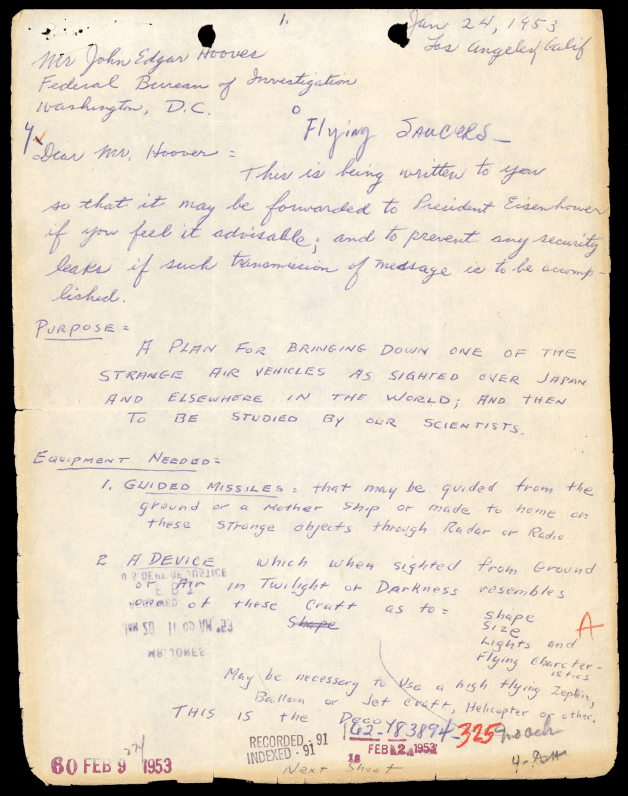 1.
Jan 24, 1953
Los Angeles, Calif
Mr John Edgar Hoover
Federal Bureau of Investigation
Washington, D.C.
Flying SAUCERS_
Dear Mr. Hoover =
This is being written to you
so that it may be forwarded to President Eisenhower
if you feel it advisable; and to prevent any security
leaks if such transmission of message is to be accomp-
lished.
PURPOSE =
A PLAN FOR BRINGING DOWN ONE OF THE
STRANGE AIR VEHICLES AS SIGHTED OVER JAPAN
AND ELSEWHERE IN THE WORLD; AND THEN
TO BE STUDIED BY OUR SCIENTISTS.
EQUIPMENT NEEDED=
1. GUIDED MISSILES = that may be guided from the
ground or a Mother Ship or made to home on
these strange objects through Radar or Radio
2 A DEVICE which when sighted from Ground
or Air in Twilight or Darkness resembles
one of these Craft as to = Shape
Shape
Size
Lights and
Flying Charcter-
istics
A
U S DEPT OF JUSTICE
F B I
MAR 20 11 00 AM '53
MR. JONES
May be necessary to Use a high flying Zepplin,
Balloon or Jet Craft, Helicopter or other.
THIS IS the Decoy
62-783894-325
RECORDED - 91
INDEXED - 91
18
FEB 12 1953
60 FEB 9 1953
Next Sheet